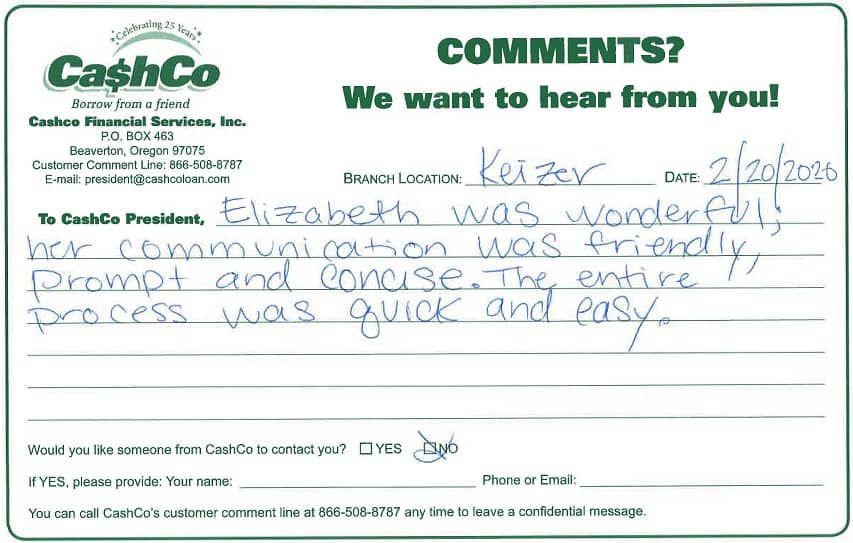 Celebrating 25 Years
Ca$hCo
Borrow from a friend
Cashco Financial Services, Inc.
P.O. BOX 463
Beaverton, Oregon 97075
Customer Comment Line: 866-508-8787
E-mail: president@cashcoloan.com
COMMENTS?
We want to hear from you!
BRANCH LOCATION: Keizer DATE: 2/20/2020
To CashCo President, Elizabeth was wonderful;
her communication was friendly,
prompt and concise. The entire
process was quick and easy.
Would you like someone from CashCo to contact you? ☐ YES ☒ NO
If YES, please provide: Your name: Phone or Email:
You can call CashCo's customer comment line at 866-508-8787 any time to leave a confidential message.